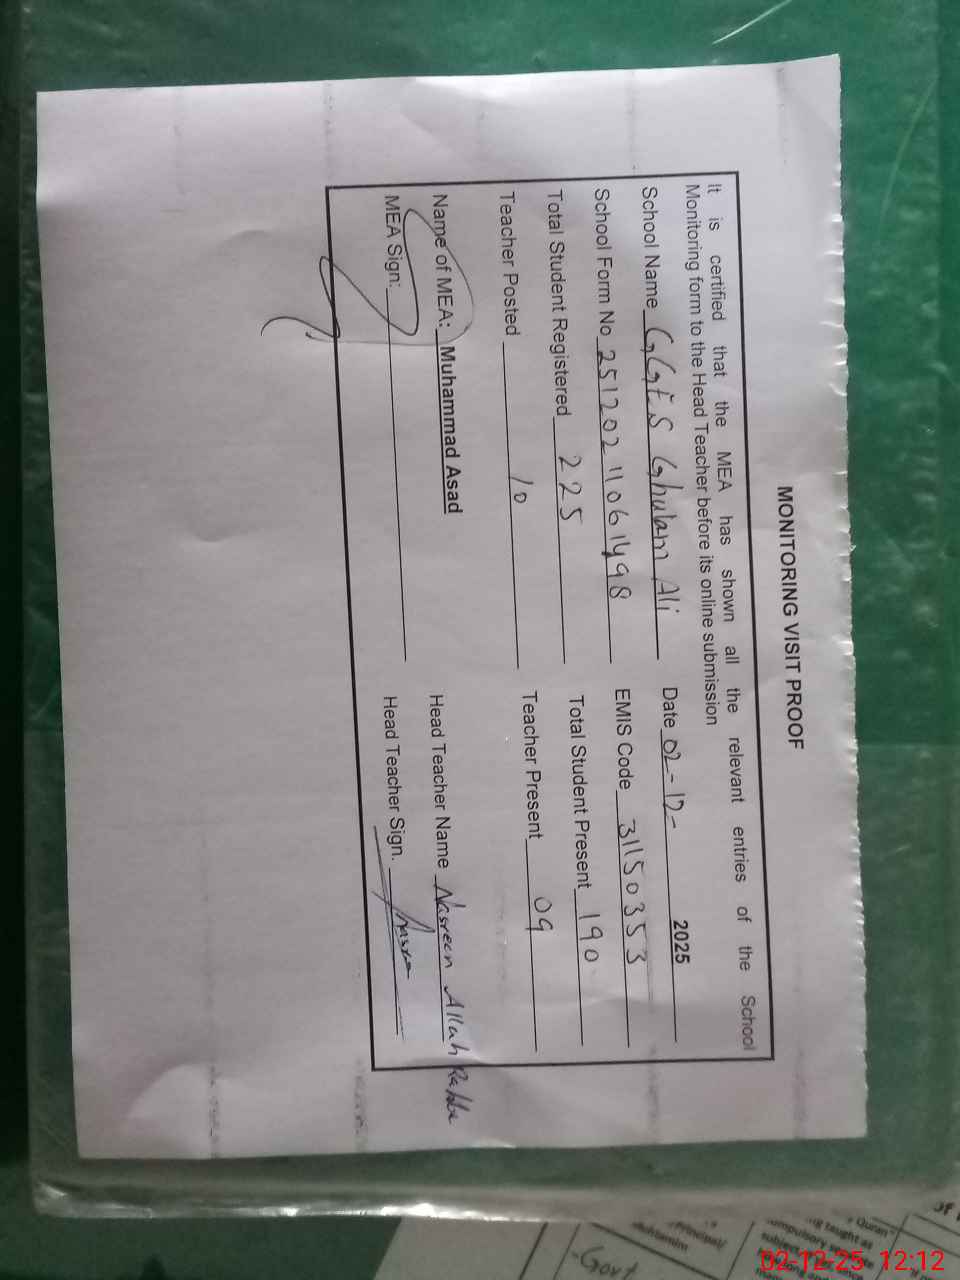 MONITORING VISIT PROOF
It is certified that the MEA has shown all the relevant entries of the School
Monitoring form to the Head Teacher before its online submission
School Name GGES Ghulam Ali Date 02-12- 2025
School Form No 251202 11061498 EMIS Code 31150353
Total Student Registered 225 Total Student Present 190
Teacher Posted 10 Teacher Present 09
Name of MEA: Muhammad Asad Head Teacher Name Nasreen Allah Rakha
MEA Sign: Head Teacher Sign.
-Govt
Principal/
Quran"
ng taught as
subject
02-12-25 12:12